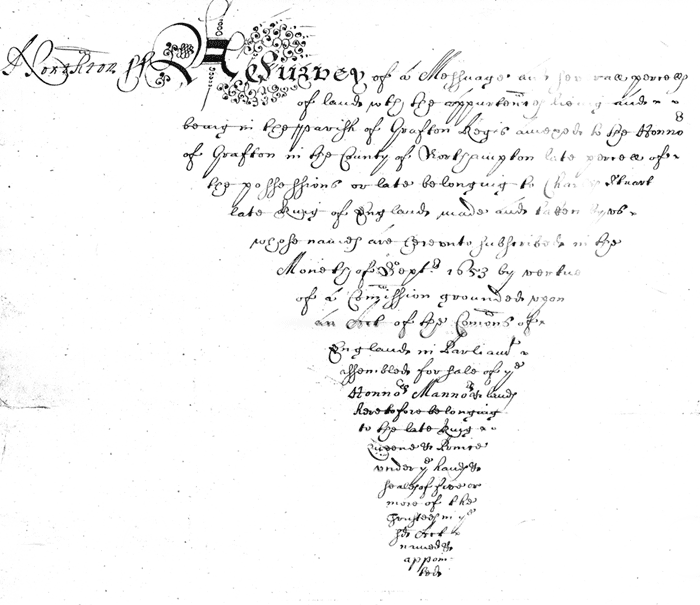 Northton ss A Survey of a Messuage and severall percells
of land wth the appurtences lieing and
being in the parish of Grafton Regis annexed to the Honno
of Grafton in the County of Northampton late percell of
the possessions or late belonging to Charles Stuart
late King of England made and taken by us
whose names are hereunto subscribed in the
Moneth of Septr 1653 by vertue
of a Comission grounded upon
an Act of the Comons of
England in Parliamt
assembled for sale of ye
Honnors Mannors & lands
heretofore belonging
to the late King
Queene & Prince
under ye hands &
seales of five or
more of the
Trustees in ye
sd Act
named &
appoin
ted